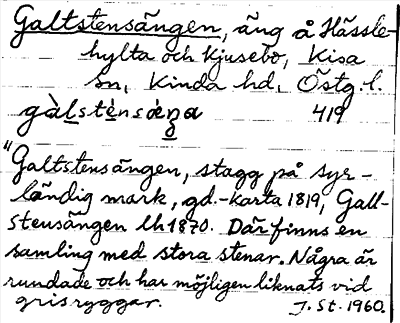 Galtstensängen, äng å Hässle-
hylta och Kjusebo, Kisa
sn, Kinda hd, Östg. l.
gàlsténsáŋa 419
"Galtstensängen, stagg på syr-
ländig mark, gd.-karta 1819, Galt-
stensängen lh 1870. Där finns en
samling med stora stenar. Några är
rundade och har möjligen liknats vid
grisryggar. J. St. 1960.